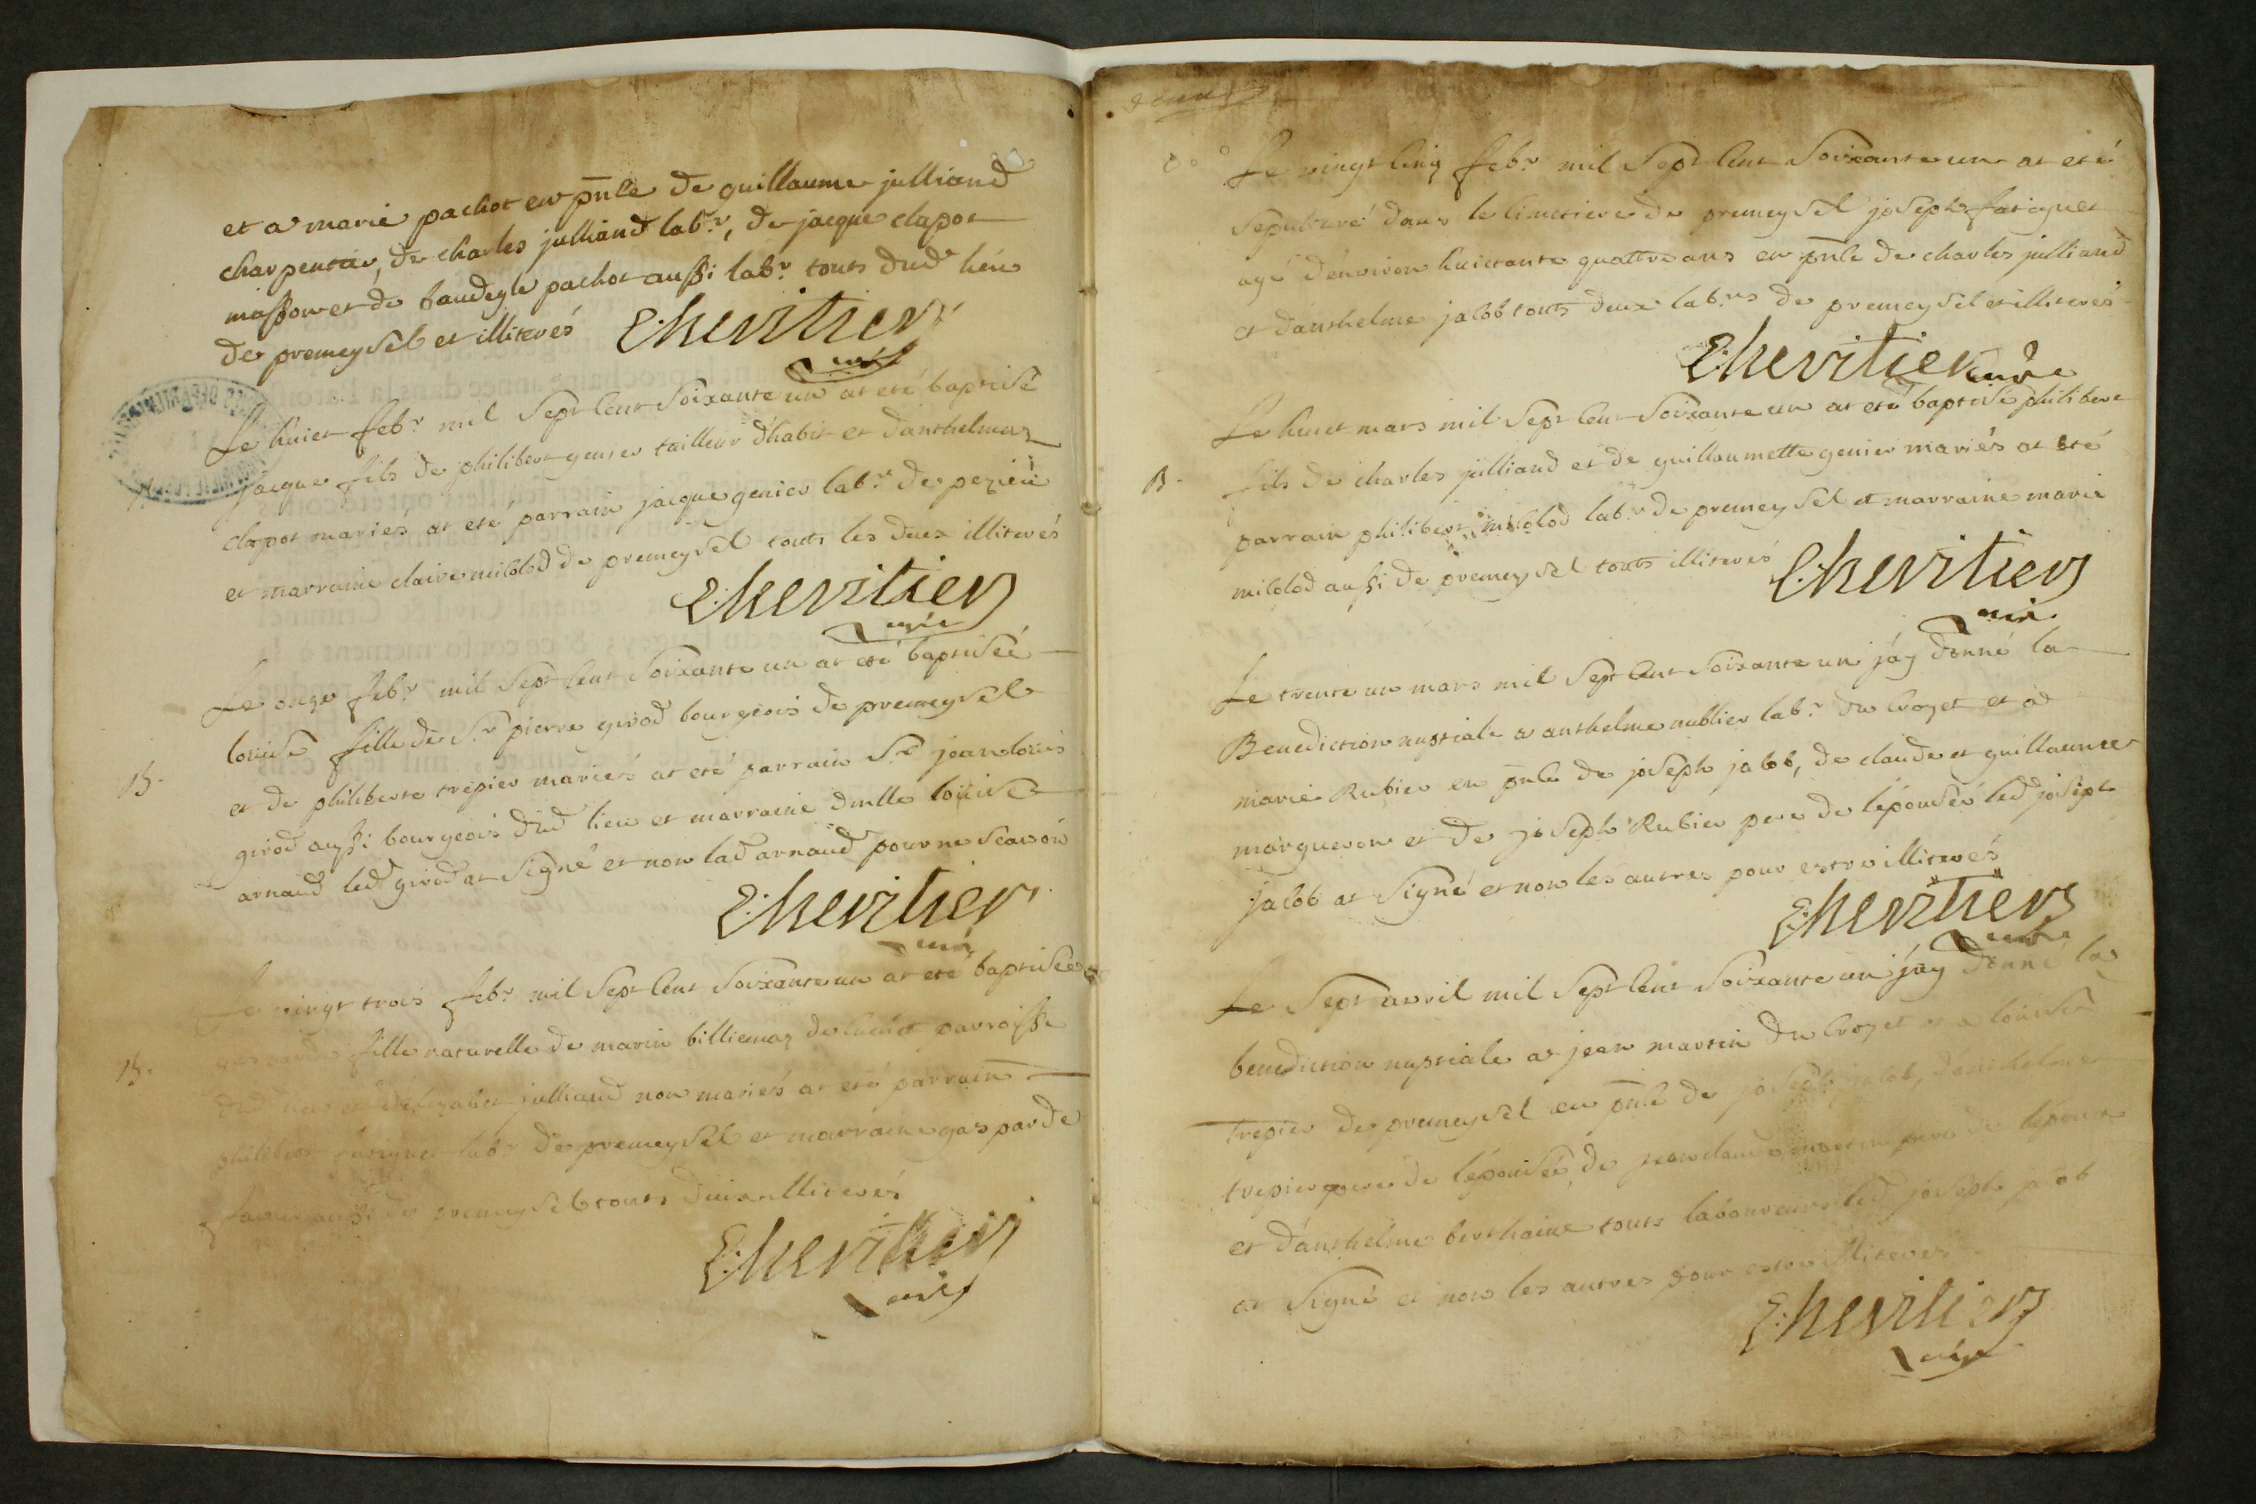 et a marie pachot en pnle de guillaume julliand
charpentier, de charles julliand labr, de jacque clapot
masson et de baudegle pachot aussi labr touts dud lieu
de premeysel et illiterés Lheritier
curé
Le huict febr mil sept cent soixante un at eté baptisé
jacque fils de philibert genier tailleur d'habit et d'anthelmaz
clapot mariés at eté parrain jacque genier labr de pezieu
et marraine claire milolod de premeysel touts les deux illiterés
Lheritier
curé
Le onze febr mil sept cent soixante un at eté baptiseé
B.
louise fille de sr pierre girod bourgeois de premeysel
et de philiberte trepier mariés at eté parrain sr jean louis
girod aussi bourgeois dud lieu et marraine dmlle louise
arnaud led girod at signé et non lad arnaud pour ne scavoir
Lheritier
curé
Le vingt trois febr mil sept cent soixante un at eté baptiseé
B.
fille naturelle de marin billiemaz de parroisse
julliand non mariés at eté parrain
philibert labr de premeysel et marraine gasparde
aussi de premeysel touts deux illiterés
Lheritier
curé
Le vingt cinq febr mil sept cent soixante un at eté
sepulturé dans le cimetiere de premeysel joseph fatiguet
agé d'environ huictante quattre ans en pnle de charles julliand
et d'anthelme jacob touts deux labrs de premeysel et illiterés
Lheritier curé
Le huict mars mil sept cent soixante un at eté baptisé philibert
B.
fils de charles julliand et de guillaumette genier mariés at eté
parrain philibert milolod labr de premeysel et marraine marie
milolod aussi de premeysel touts illiterés Lheritier
curé
Le trente un mars mil sept cent soixante un j'ay donné la
Benediction nuptiale a anthelme nublier labr du crozet et a
marie Rubier en pnle de joseph jacob, de claude et guillaume
margueron et de joseph Rubier pere de l'épouseé led joseph
jacob at signé et non les autres pour estre illiterés
Lheritier
curé
Le sept avril mil sept cent soixante un j'ay donné la
benediction nuptiale a jean martin du crozet et a louise
trepier de premeysel en pnle de joseph jacob, d'anthelme
trepier pere de l'épouseé, de jean claude martin pere de l'epoux
et d'anthelme berthaine touts laboureurs led joseph jacob
at signé et non les autres pour estre illiterés
Lheritier
curé